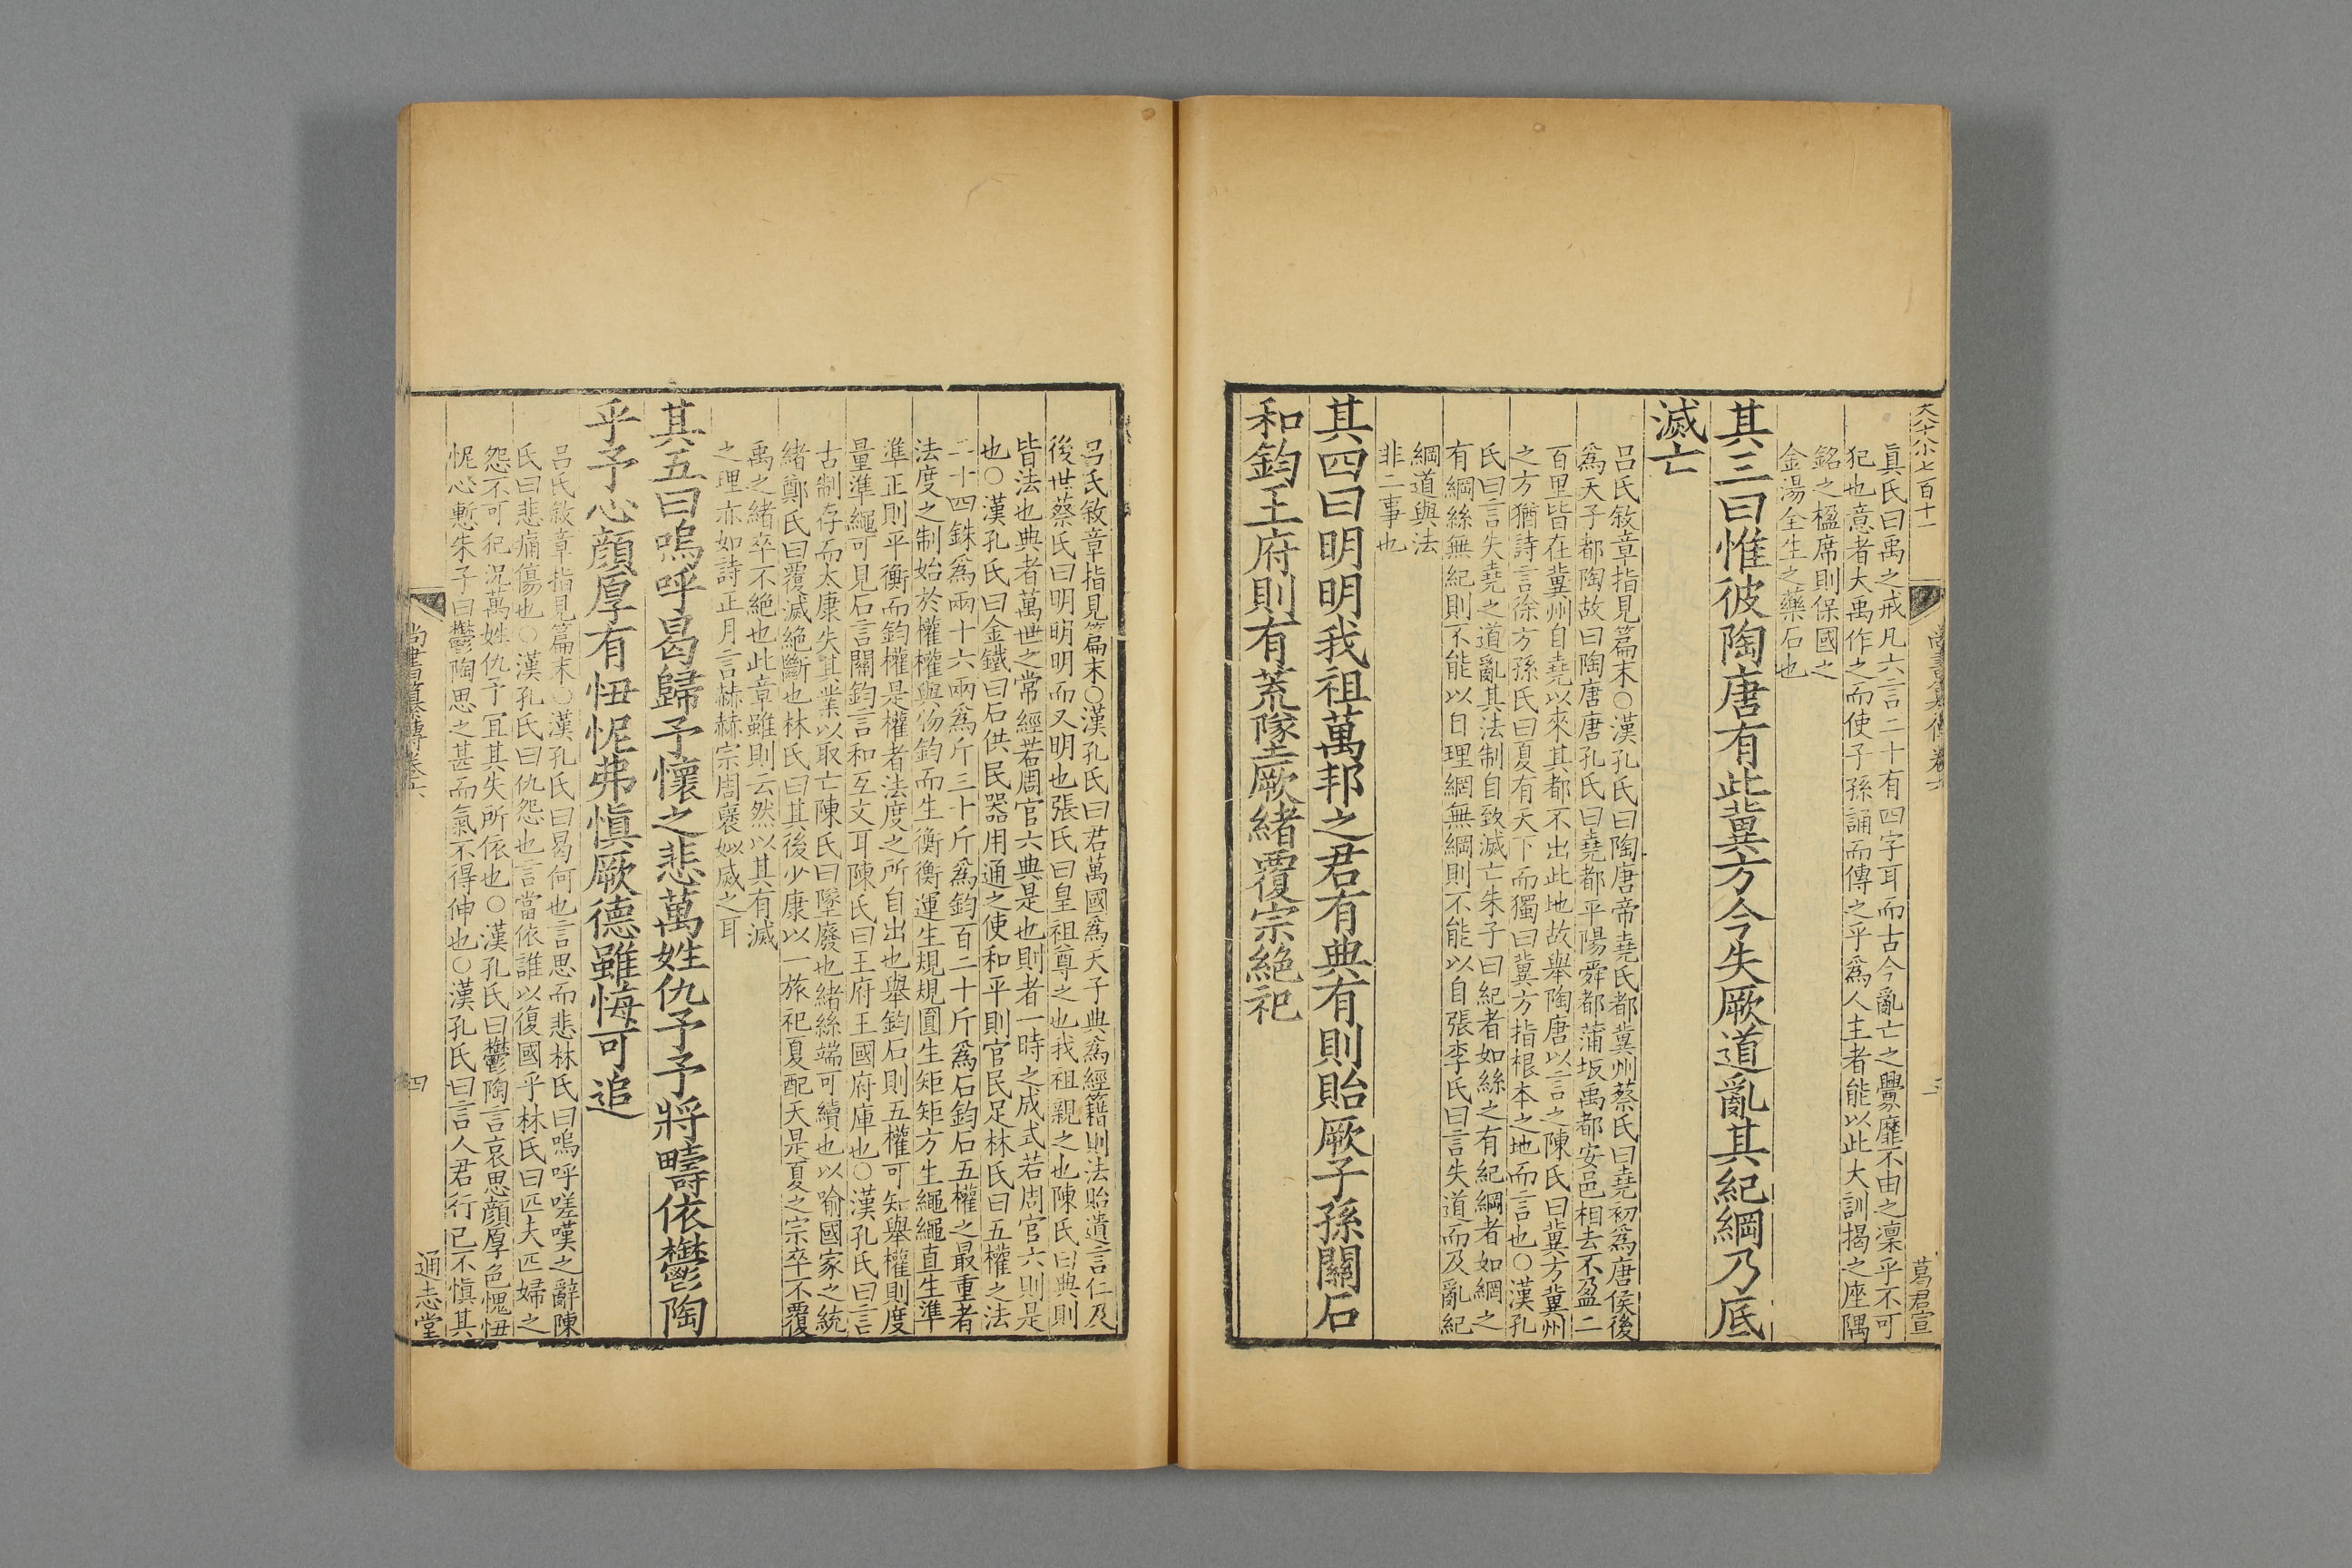 大八十八小七百十一
尚書纂傳卷六
葛君宣
真氏曰禹之戒凡六言二十有四字耳而古今亂亡之釁靡不由之凜乎不可
犯也意者大禹作之而使子孫誦而傳之乎爲人主者能以此大訓揭之座隅
銘之楹席則保國之
金湯全生之藥石也
其三曰惟彼陶唐有此冀方今失厥道亂其紀綱乃底
滅亡
呂氏敘章指見篇末○漢孔氏曰陶唐帝堯氏都冀州蔡氏曰堯初爲唐侯後
爲天子都陶故曰陶唐唐孔氏曰堯都平陽舜都蒲坂禹都安邑相去不盈二
百里皆在冀州自堯以來其都不出此地故舉陶唐以言之陳氏曰冀方冀州
之方猶詩言徐方孫氏曰夏有天下而獨曰冀方指根本之地而言也○漢孔
氏曰言失堯之道亂其法制自致滅亡朱子曰紀者如絲之有紀綱者如網之
有綱絲無紀則不能以自理網無綱則不能以自張李氏曰言失道而及亂紀
綱道與法
非二事也
其四曰明明我祖萬邦之君有典有則貽厥子孫關石
和鈞王府則有荒墜厥緒覆宗絶祀
呂氏敘章指見篇末○漢孔氏曰君萬國爲天子典爲經籍則法貽遺言仁及
後世蔡氏曰明明明而又明也張氏曰皇祖尊之也我祖親之也陳氏曰典則
皆法也典者萬世之常經若周官六典是也則者一時之成式若周官六則是
也○漢孔氏曰金鐵曰石供民器用通之使和平則官民足林氏曰五權之法
二十四銖爲兩十六兩爲斤三十斤爲鈞百二十斤爲石鈞石五權之最重者
法度之制始於權權與物鈞而生衡衡運生規規圓生矩矩方生繩繩直生準
準正則平衡而鈞權是權者法度之所自出也舉鈞石則五權可知舉權則度
量準繩可見石言關鈞言和互文耳陳氏曰王府王國府庫也○漢孔氏曰言
古制存而太康失其業以取亡陳氏曰墜廢也緒絲端可續也以喻國家之統
緒鄭氏曰覆滅絶斷也林氏曰其後少康以一旅祀夏配天是夏之宗卒不覆
禹之緒卒不絶也此章雖則云然以其有滅
之理亦如詩正月言赫赫宗周襃姒烕之耳
其五曰嗚呼曷歸予懷之悲萬姓仇予予將疇依鬱陶
乎予心顔厚有忸怩弗愼厥德雖悔可追
呂氏敘章指見篇末○漢孔氏曰曷何也言思而悲林氏曰嗚呼嗟嘆之辭陳
氏曰悲痛傷也○漢孔氏曰仇怨也言當依誰以復國乎林氏曰匹夫匹婦之
怨不可犯況萬姓仇予宜其失所依也○漢孔氏曰鬱陶言哀思顔厚色愧忸
怩心慙朱子曰鬱陶思之甚而氣不得伸也○漢孔氏曰言人君行己不愼其
尚書纂傳卷六
四
通志堂